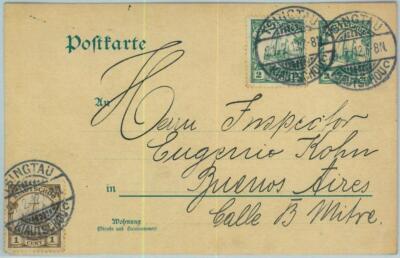 Postkarte
An
Herrn Inspector
Eugenio Kohn
in Buenos Aires
Calle B Mitre.
Wohnung
(Straße und Hausnummer)
TSINGTAU
KIAUTSCHOU
2
TSINGTAU
KIAUTSCHOU
2
TSINGTAU
KIAUTSCHOU
1 CENT 1